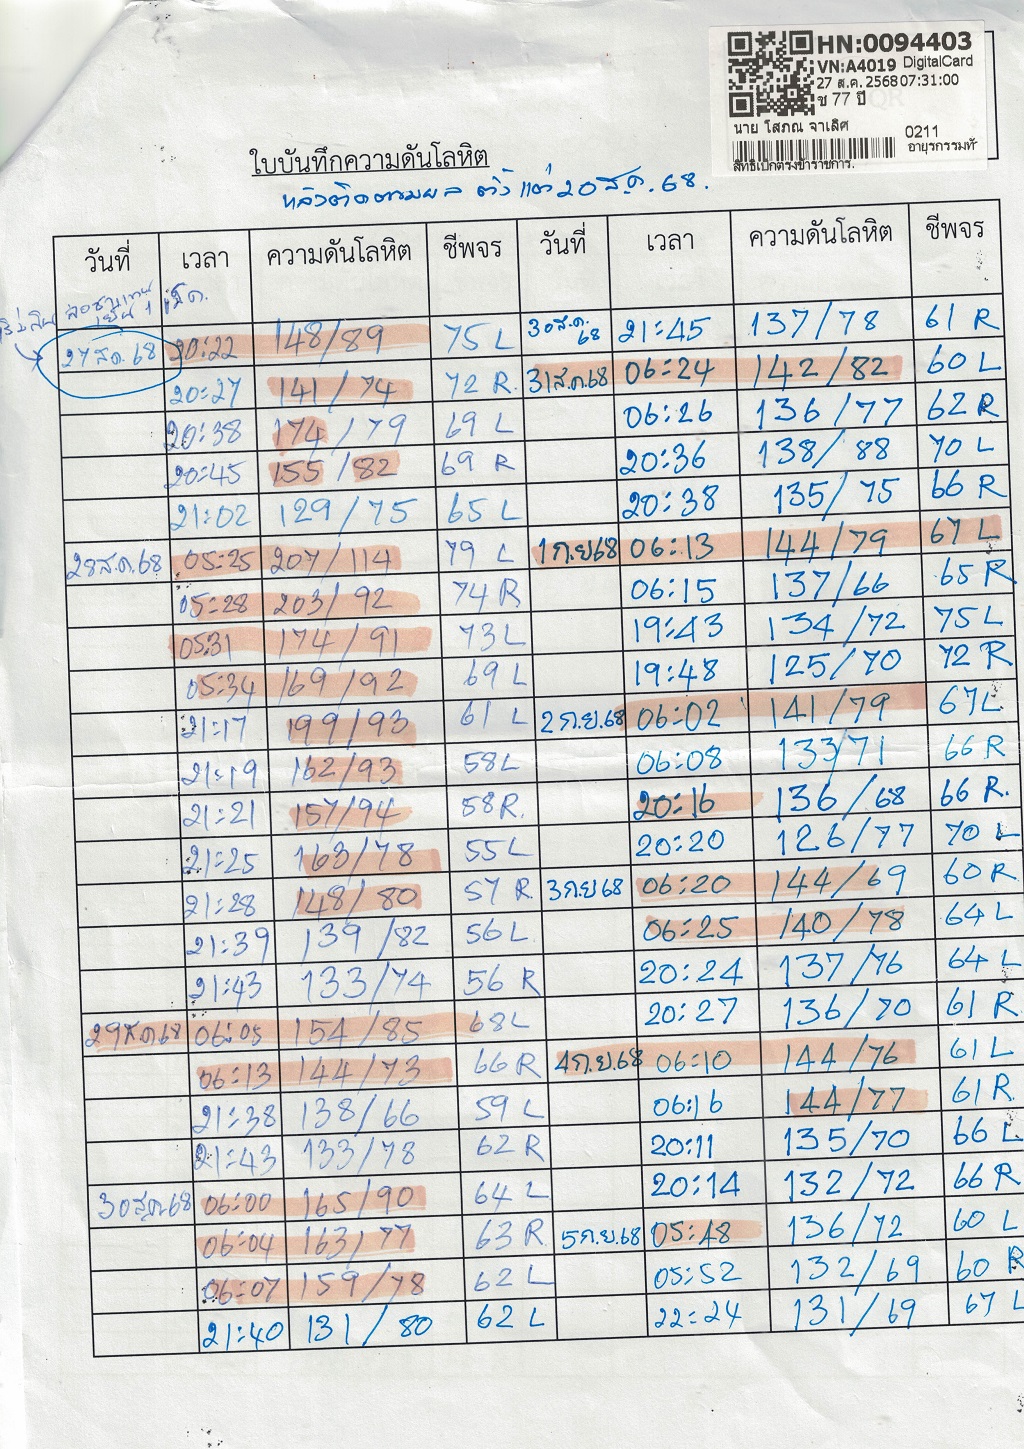 HN:0094403
VN:A4019 DigitalCard
27 ส.ค. 2568 07:31:00
ช 77 ปี
นาย โสภณ จาเลิศ
0211
อายุรกรรมทั
สิทธิเบิกตรงข้าราชการ.
ใบบันทึกความดันโลหิต
หลังติดตามผล ตั้งแต่ 20 ส.ค. 68.
วันที่ เวลา ความดันโลหิต ชีพจร วันที่ เวลา ความดันโลหิต ชีพจร
27 ส.ค. 68 20:22 148/89 75 L 30 ส.ค. 68 21:45 137/78 61 R
20:27 141/74 72 R. 31 ส.ค. 68 06:24 142/82 60 L
20:38 174/79 69 L 06:26 136/77 62 R
20:45 155/82 69 R 20:36 138/88 70 L
21:02 129/75 65 L 20:38 135/75 66 R
28 ส.ค. 68 05:25 207/114 79 L 1 ก.ย 68 06:13 144/79 67 L
05:28 203/92 74 R 06:15 137/66 65 R
05:31 174/91 73 L 19:43 134/72 75 L
05:34 169/92 69 L 19:48 125/70 72 R
21:17 199/93 61 L 2 ก.ย. 68 06:02 141/79 67 L
21:19 162/93 58 L 06:08 133/71 66 R
21:21 157/94 58 R. 20:16 136/68 66 R.
21:25 163/78 55 L 20:20 126/77 70 L
21:28 148/80 57 R 3 ก.ย 68 06:20 144/69 60 R
21:39 139/82 56 L. 06:25 140/78 64 L
21:43 133/74 56 R 20:24 137/76 64 L
29 ส.ค 68 06:05 154/85 68 L 20:27 136/70 61 R
06:13 144/73 66 R 4 ก.ย. 68 06:10 144/76 61 L
21:38 138/66 59 L 06:16 144/77 61 R
21:43 133/78 62 R 20:11 135/70 66 L
30 ส.ค. 68 06:00 165/90 64 L 20:14 132/72 66 R
06:04 163/77 63 R 5 ก.ย. 68 05:48 136/72 60 L
06:07 159/78 62 L 05:52 132/69 60 R
21:40 131/80 62 L 22:24 131/69 67 L